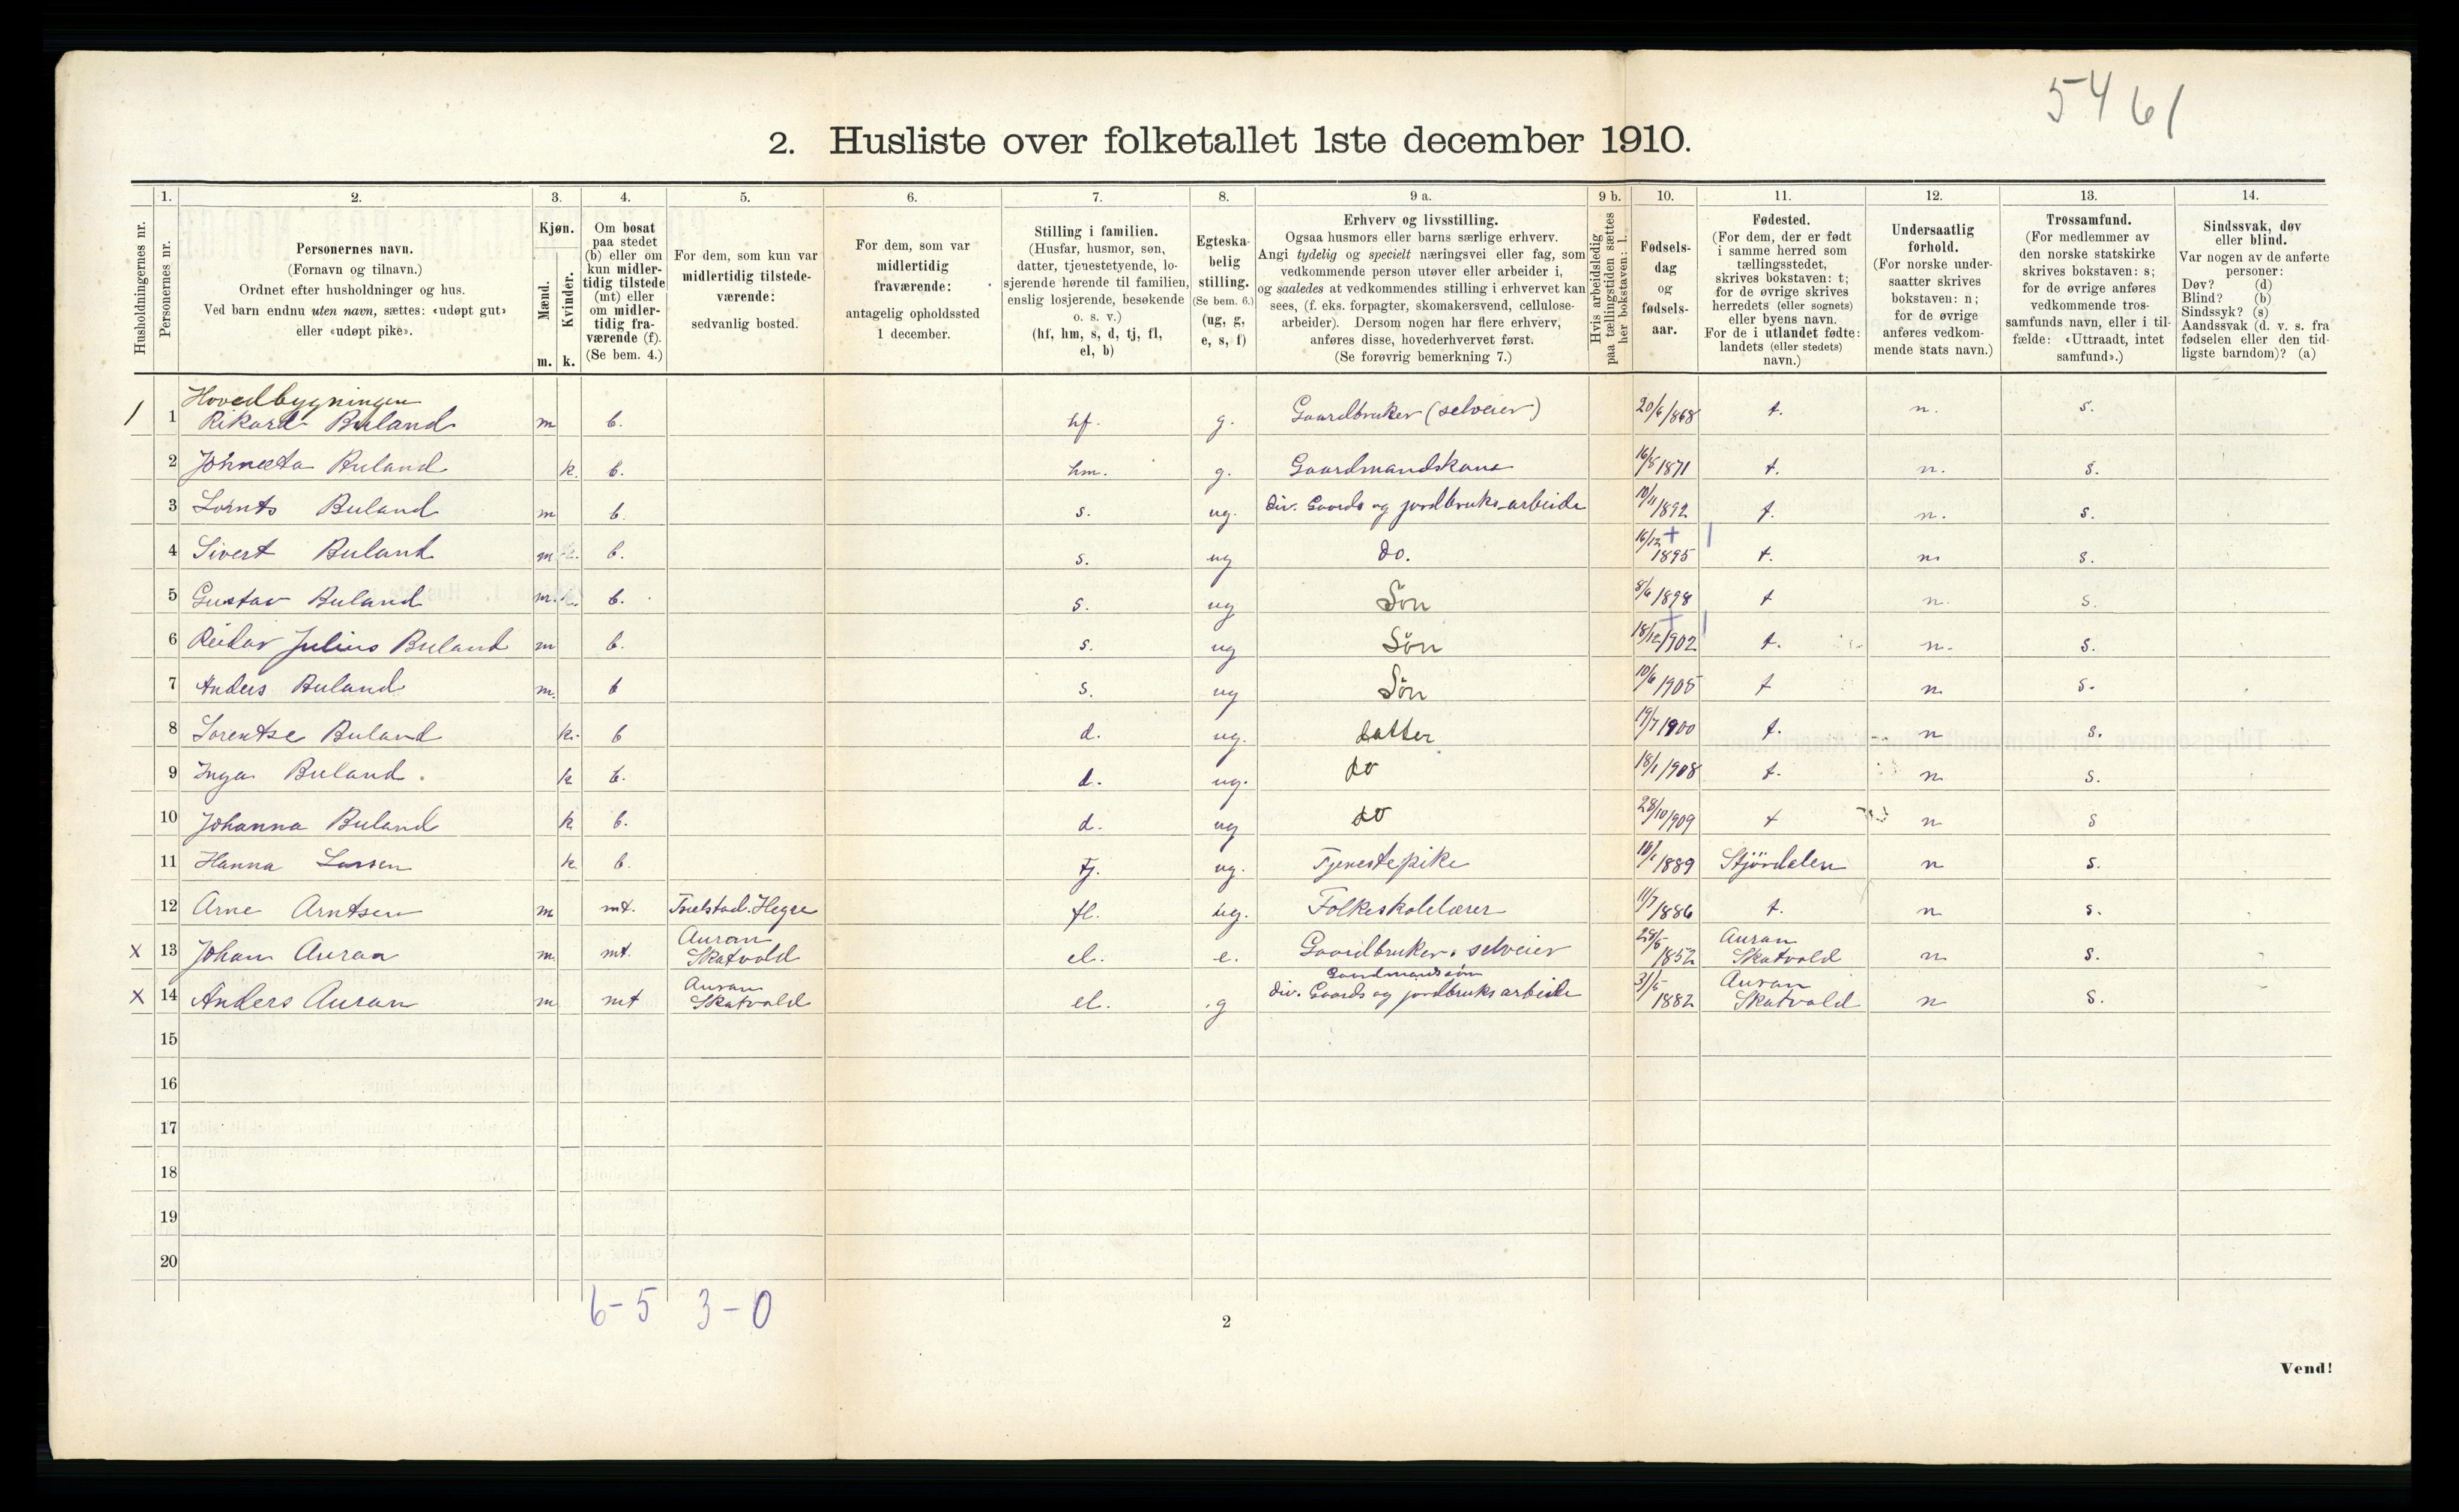 5461
2. Husliste over folketallet 1ste december 1910.
Husholdningernes nr.
1. Personernes nr.
2. Personernes navn.
(Fornavn og tilnavn.)
Ordnet efter husholdninger og hus.
Ved barn endnu uten navn, sættes: «udøpt gut»
eller «udøpt pike».
3. Kjøn.
Mænd. m.
Kvinder. k.
4. Om bosat
paa stedet
(b) eller om
kun midler-
tidig tilstede
(mt) eller
om midler-
tidig fra-
værende (f).
(Se bem. 4.)
5. For dem, som kun var
midlertidig tilstede-
værende:
sedvanlig bosted.
6. For dem, som var
midlertidig
fraværende:
antagelig opholdssted
1 december.
7. Stilling i familien.
(Husfar, husmor, søn,
datter, tjenestetyende, lo-
sjerende hørende til familien,
enslig losjerende, besøkende
o. s. v.)
(hf, hm, s, d, tj, fl,
el, b)
8. Egteska-
belig
stilling.
(Se bem. 6.)
(ug, g,
e, s, f)
9 a. Erhverv og livsstilling.
Ogsaa husmors eller barns særlige erhverv.
Angi tydelig og specielt næringsvei eller fag, som
vedkommende person utøver eller arbeider i,
og saaledes at vedkommendes stilling i erhvervet kan
sees, (f. eks. forpagter, skomakersvend, cellulose-
arbeider). Dersom nogen har flere erhverv,
anføres disse, hovederhvervet først.
(Se forøvrig bemerkning 7.)
9 b. Hvis arbeidsledig
paa tællingstiden sættes
her bokstaven: l.
10. Fødsels-
dag
og
fødsels-
aar.
11. Fødested.
(For dem, der er født
i samme herred som
tællingsstedet,
skrives bokstaven: t;
for de øvrige skrives
herredets (eller sognets)
eller byens navn.
For de i utlandet fødte:
landets (eller stedets)
navn.)
12. Undersaatlig
forhold.
(For norske under-
saatter skrives
bokstaven: n;
for de øvrige
anføres vedkom-
mende stats navn.)
13. Trossamfund.
(For medlemmer av
den norske statskirke
skrives bokstaven: s;
for de øvrige anføres
vedkommende tros-
samfunds navn, eller i til-
fælde: «Uttraadt, intet
samfund».)
14. Sindssvak, døv
eller blind.
Var nogen av de anførte
personer:
Døv? (d)
Blind? (b)
Sindssyk? (s)
Aandssvak (d. v. s. fra
fødselen eller den tid-
ligste barndom)? (a)
Hovedbygningen
1 1 Rikard Buland m b. hf. g. Gaardbruker (selveier) 20/6/868 t. n. s.
2 Johneeta Buland k. b. hm. g. Gaardmandskone 16/8 1871 t. n. s.
3 Lornts Buland m b. s. ug. div. Gaards og jordbruks-arbeide 10/11 1892 t. n. s.
4 Sivert Buland m b. s. ug do. 16/12 1895 t. n. s.
5 Gustav Buland m. b. s. ug Søn 8/6 1898 t n. s.
6 Reidar Julius Buland m b. s. ug Søn 18/12/902 t. n. s.
7 Anders Buland m. b s. ug Søn 10/6 1905 t n. s.
8 Lorentse Buland k. b d. ug. datter 19/7 1900 t. n s.
9 Inga Buland. k b. d. ug. do 18/1 1908 t. n s.
10 Johanna Buland k b. d. ug do 28/10/909 t n s
11 Hanna Larsen k b. tj. ug. Tjenestepike 1889 Stjördalen n s.
12 Arne Arntsen m mt. Hegre fl. ug. Folkeskolelærer 11/7 1886 t. n s.
x 13 Johan Auran m. mt. Auran Skatvold el. e. Gaardbruker. selveier 1852 Auran Skatvold n s.
Gaardmandssøn
x 14 Anders Auran m mt Auran Skatvold el. g div. Gaards og jordbruks arbeide 31/5 1882 Auran Skatvold n s.
15
16
17
18
19
20
6-5 3-0
2
Vend!